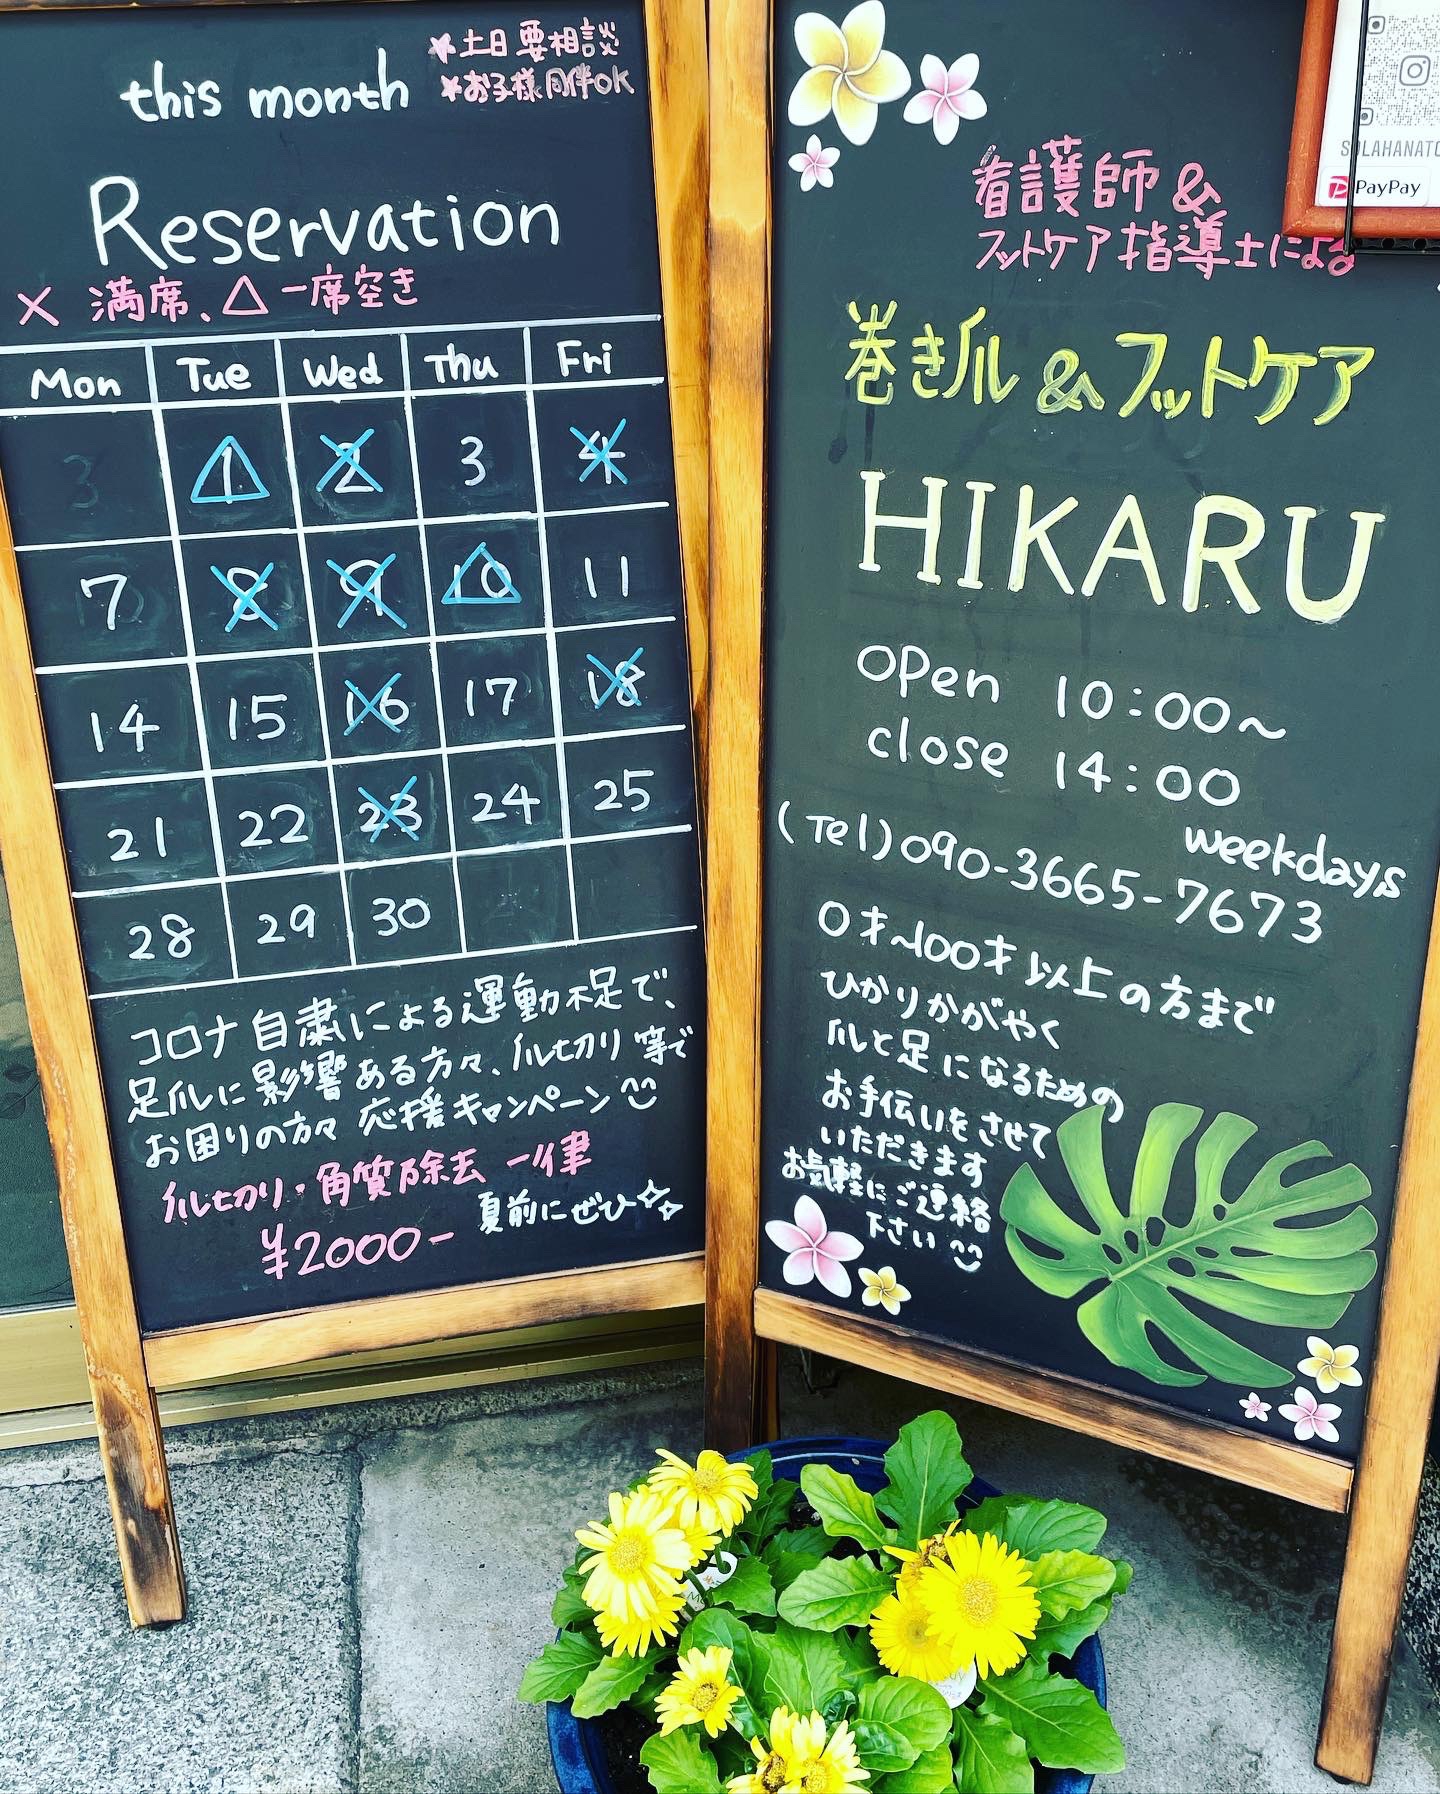 this month
*土日要相談
*お子様同伴OK
Reservation
× 満席、△一席空き
Mon Tue Wed Thu Fri
3 1 2 3 4
7 8 9 10 11
14 15 16 17 18
21 22 23 24 25
28 29 30
コロナ自粛による運動不足で、
足爪に影響ある方々、爪切り等で
お困りの方々 応援キャンペーン
爪切り・角質除去 一律
¥2000- 夏前にぜひ
PayPay
看護師&
フットケア指導士による
巻き爪&フットケア
HIKARU
open 10:00~
close 14:00
weekdays
(Tel)090-3665-7673
0才~100才以上の方まで
ひかりかがやく
爪と足になるための
お手伝いをさせて
いただきます
お気軽にご連絡
下さい